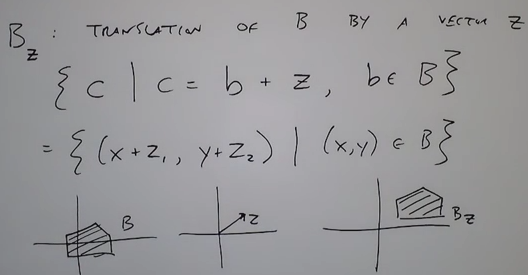 B_z : TRANSLATION OF B BY A VECTOR Z
{ c | c = b + z, b ∈ B }
= { (x+z₁, y+z₂) | (x,y) ∈ B }
B z B_z